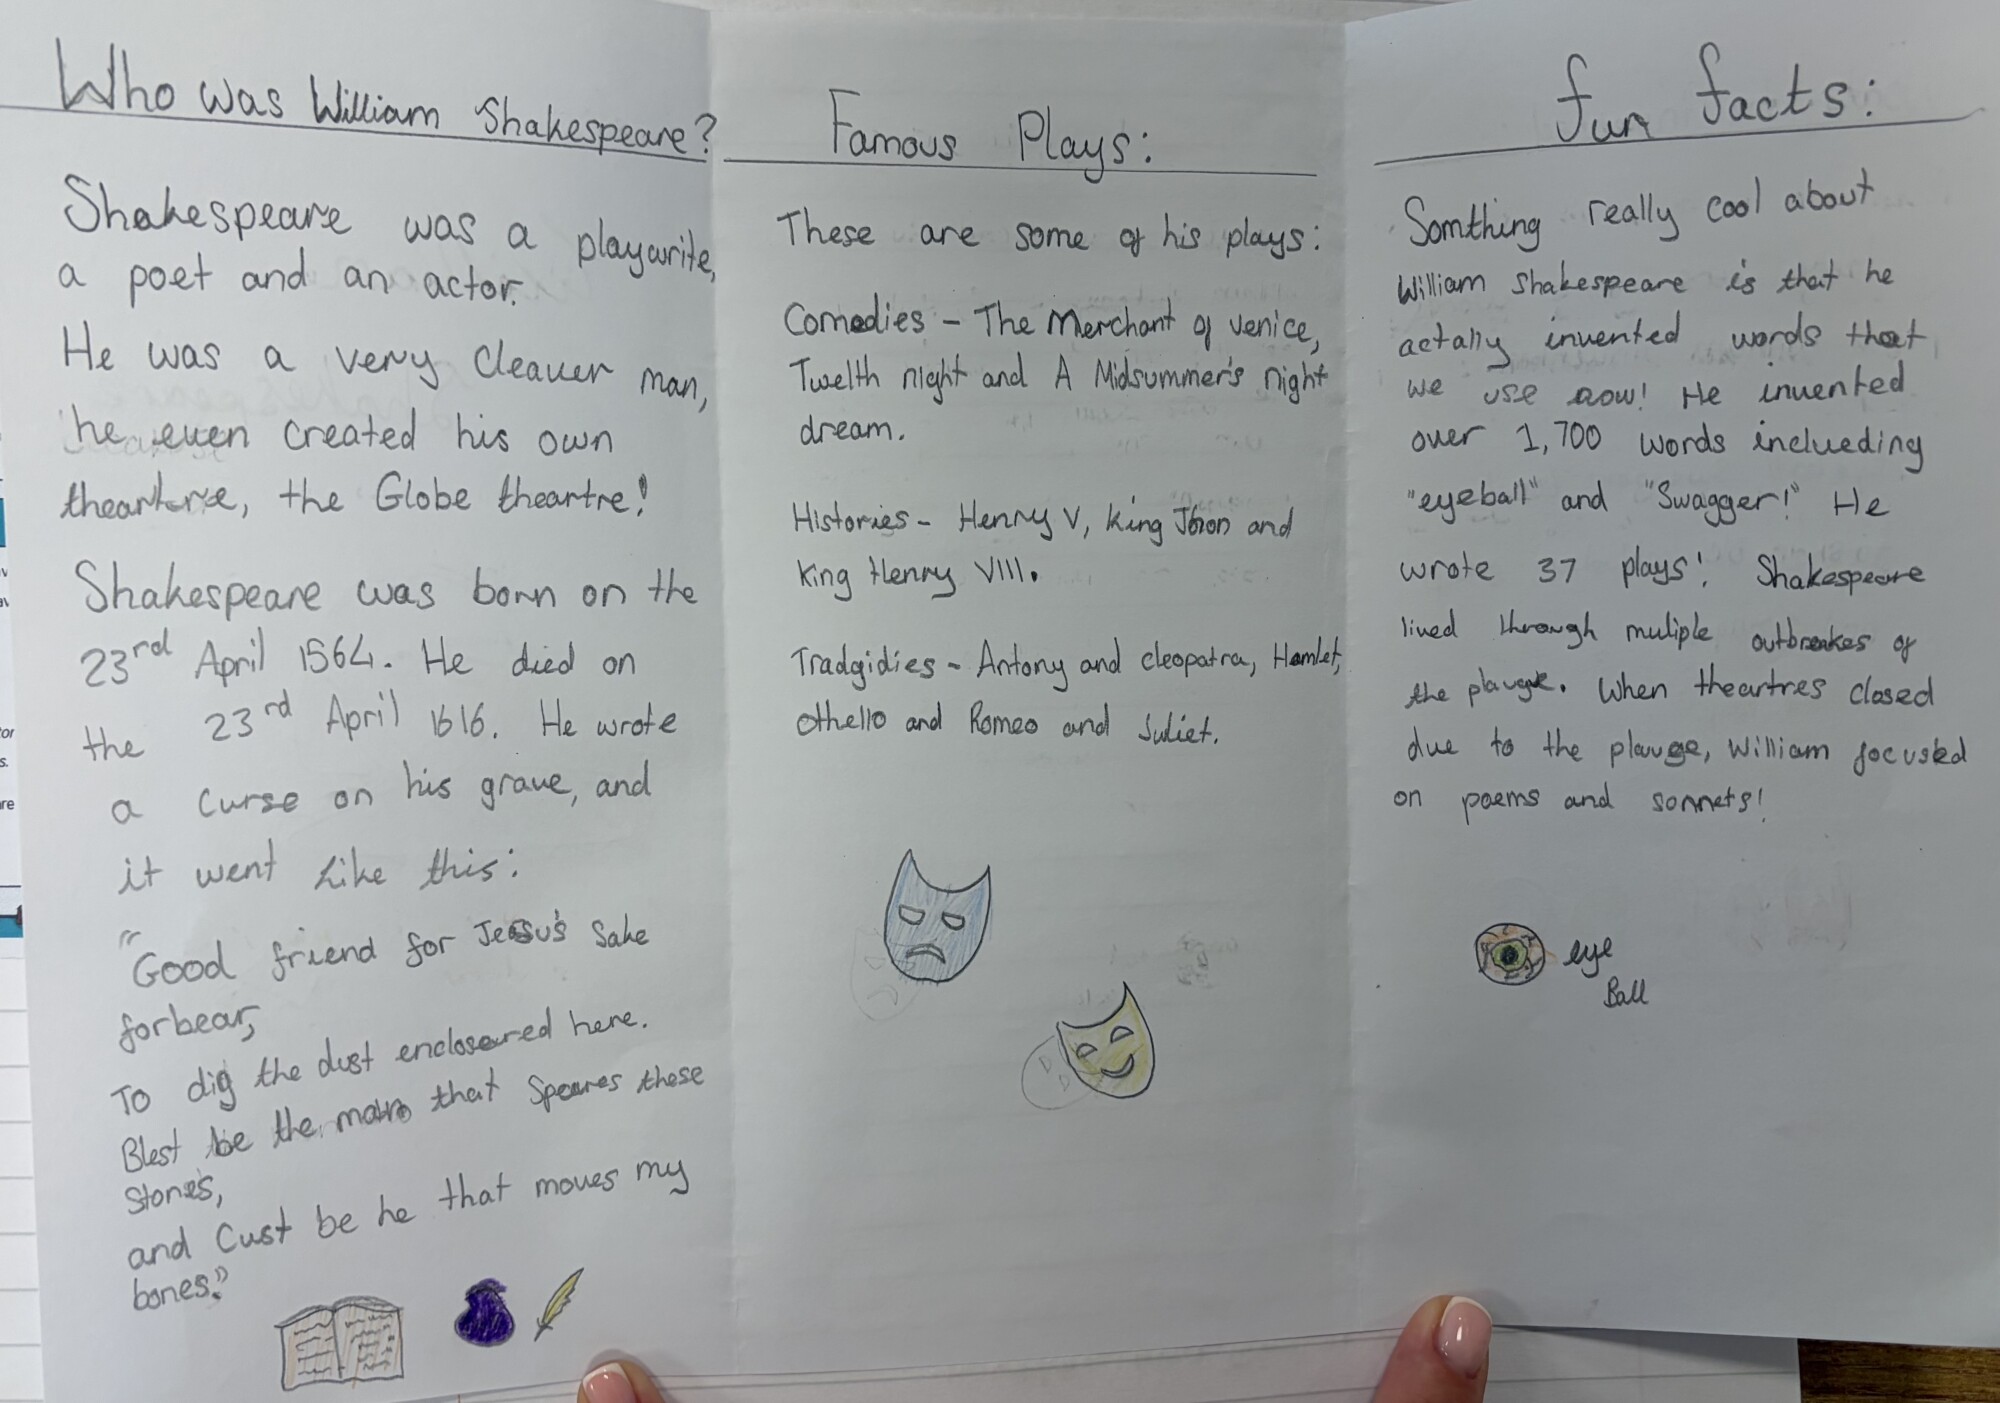 Who was William Shakespeare?
Shakespeare was a playwrite,
a poet and an actor.
He was a very cleaver man,
he even created his own
theartre, the Globe theartre!
Shakespeare was born on the
23rd April 1564. He died on
the 23rd April 1616. He wrote
a curse on his grave, and
it went like this:
"Good friend for Jesus's sake
forbear,
To dig the dust encloseured here.
Blest be the man that Speares these
Stones,
and Cust be he that moves my
bones."
Famous Plays:
These are some of his plays:
Comedies - The Merchant of Venice,
Twelth night and A Midsummer's night
dream.
Histories - Henry V, King John and
King Henry VIII.
Tradgidies - Antony and cleopatra, Hamlet,
Othello and Romeo and Juliet.
fun facts:
Somthing really cool about
William Shakespeare is that he
actally invented words that
we use now! He invented
over 1,700 words inclueding
"eyeball" and "Swagger!" He
wrote 37 plays! Shakespeare
lived through muliple outbreakes of
the plauge. When theartres closed
due to the plauge, William focused
on poems and sonnets!
eye
Ball